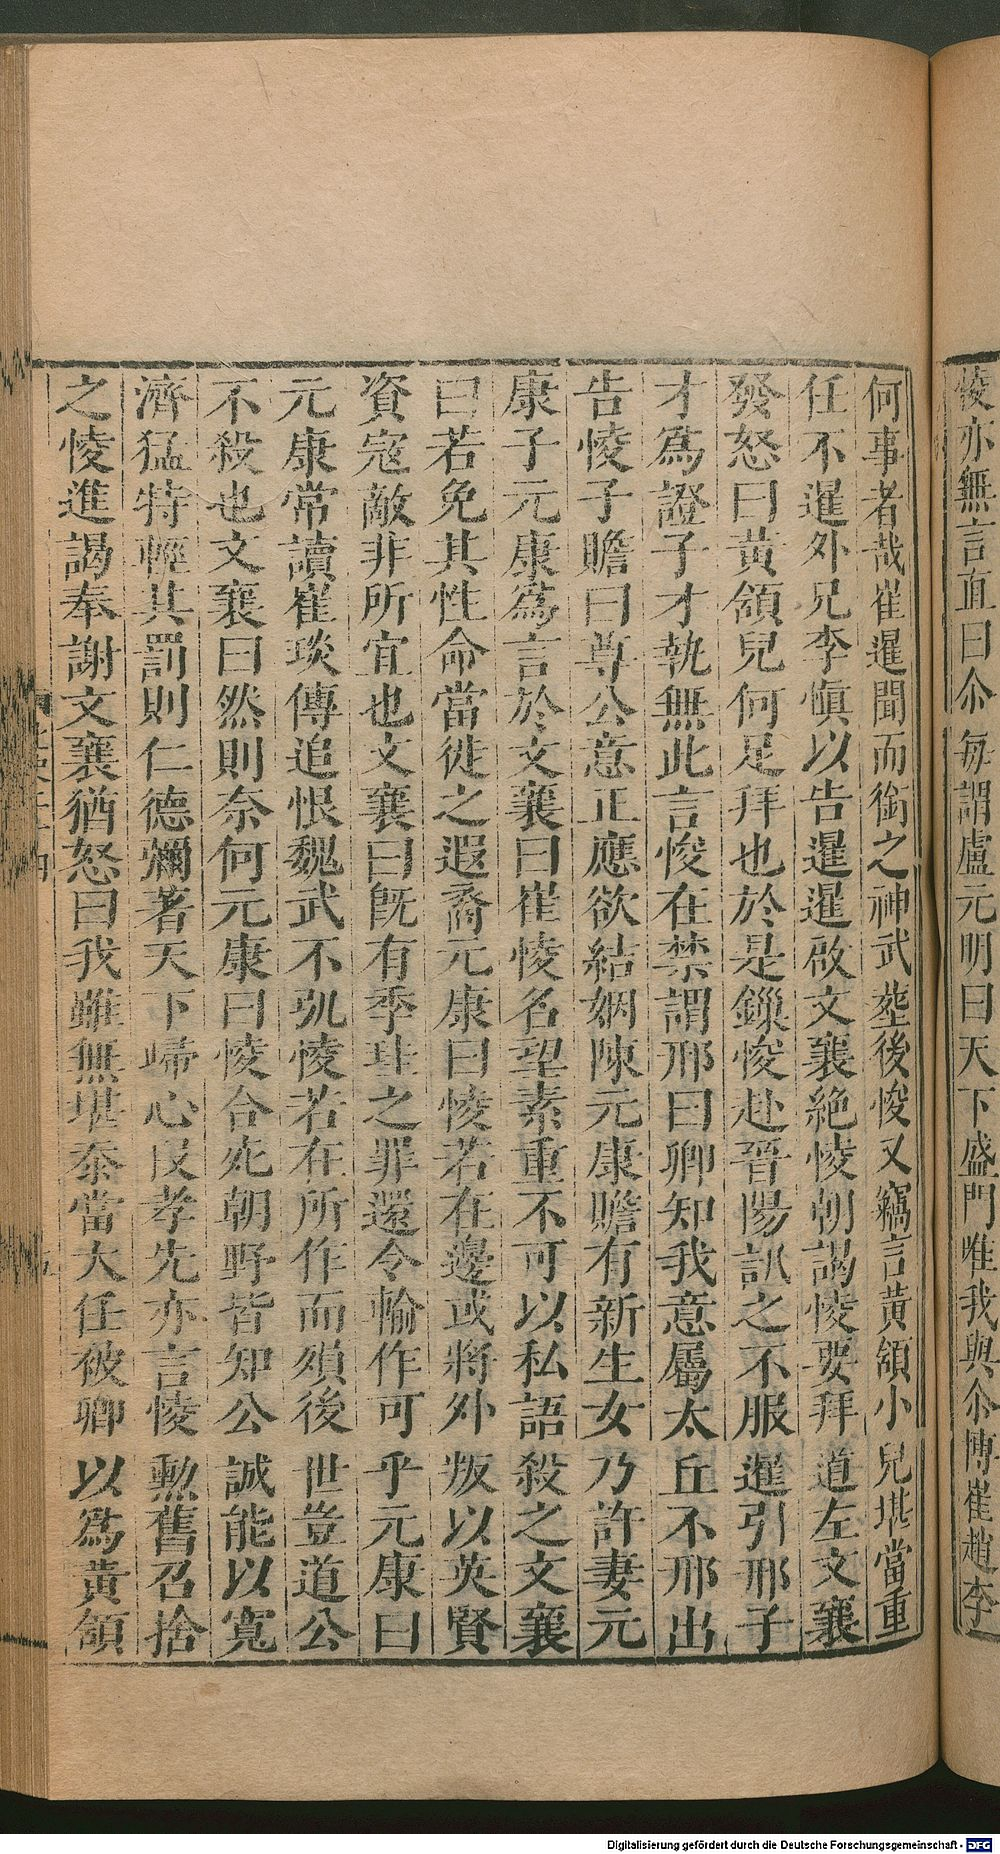 㥄亦無言直曰尒每謂盧元明曰天下盛門唯我與尒博崔趙李
何事者哉崔暹聞而銜之神武塟後㥄又竊言黃頷小兒堪當重
任不暹外兄李愼以告暹暹啟文襄絶㥄朝謁㥄要拜道左文襄
發怒曰黃頷兒何足拜也於是鏁㥄赴晉陽訊之不服暹引邢子
才爲證子才執無此言㥄在禁謂邢曰卿知我意屬太丘不邢出
告㥄子贍曰尊公意正應欲結姻陳元康贍有新生女乃許妻元
康子元康爲言於文襄曰崔㥄名望素重不可以私語殺之文襄
曰若免其性命當徙之遐裔元康曰㥄若在邊或將外叛以英賢
資寇敵非所宜也文襄曰旣有季珪之罪還令輸作可乎元康曰
元康常讀崔琰傳追恨魏武不弘㥄若在所作而殞後世豈道公
不殺也文襄曰然則奈何元康曰㥄合死朝野皆知公誠能以寬
濟猛特輕其罰則仁德彌著天下歸心段孝先亦言㥄勲舊召捨
之㥄進謁奉謝文襄猶怒曰我雖無堪忝當大任被卿以爲黃頷
Digitalisierung gefördert durch die Deutsche Forschungsgemeinschaft - DFG